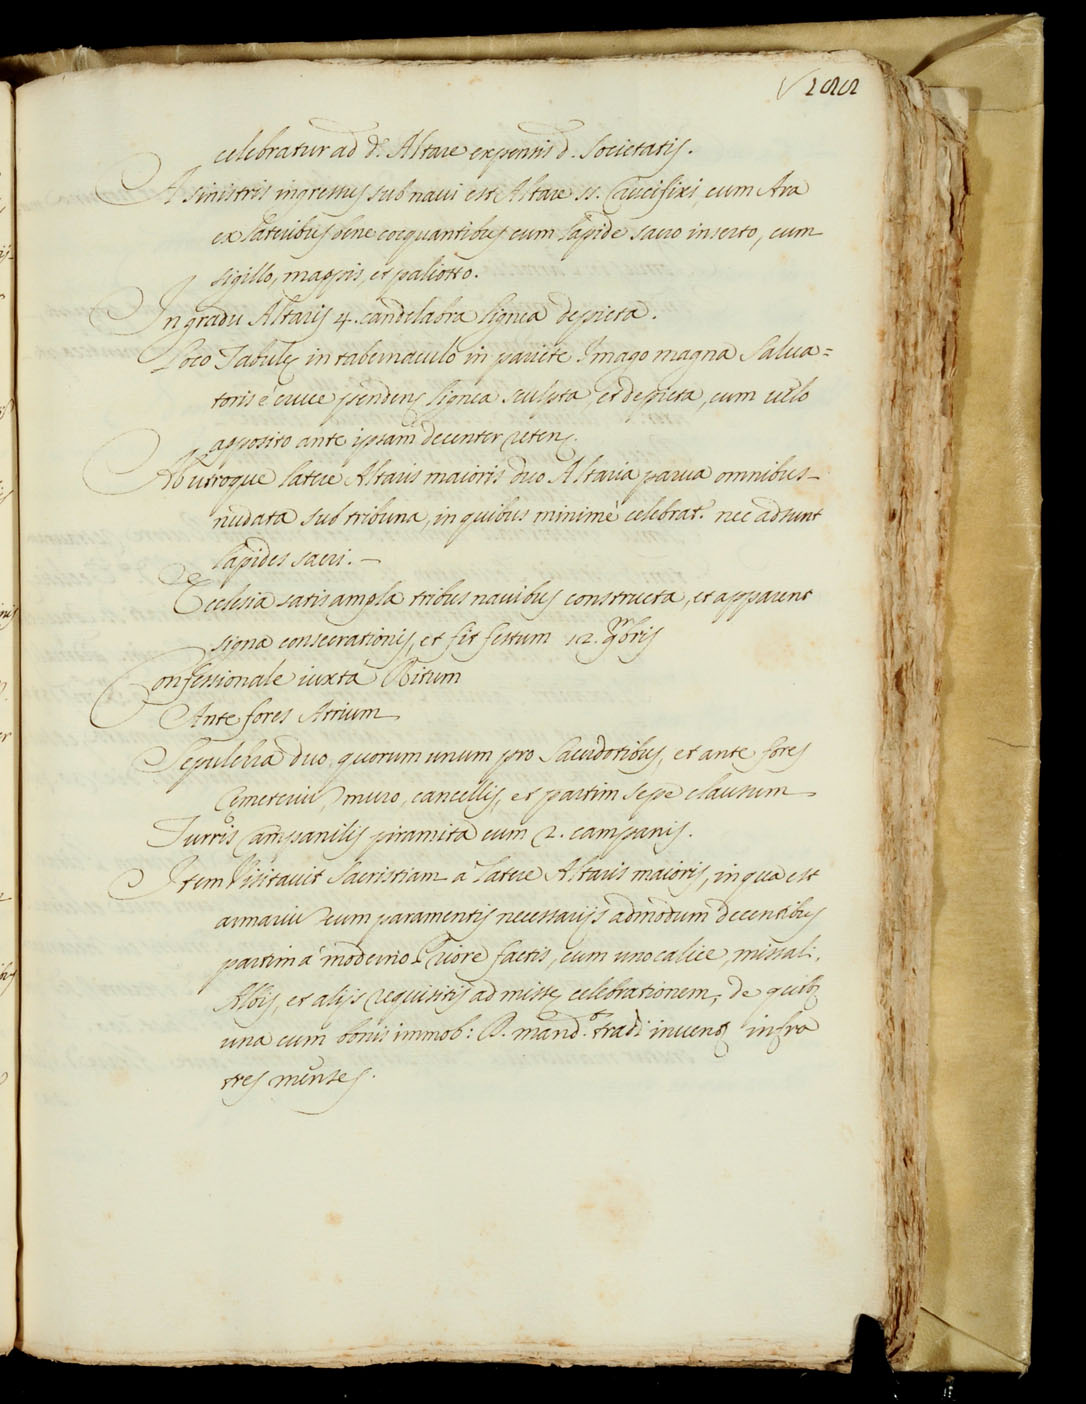 celebratur ad d. Altare expensis d. Societatis.
A sinistris ingressus sub naui est Altare ss. Crucifixi, cum Ara
ex lateribus bene coequantibus cum lapide sacro inserto, cum
sigillo, mappis, et paliotto.
In gradu Altaris 4. candelabra lignea depicta.
Loco Tabulę in tabernaculo in pariete Imago magna Salua=
toris è cruce pendens lignea sculpta, et depicta, cum uelo
apposito ante ipsam decenter retens.
Ab utroque latere Altaris maioris duo Altaria parua omnibus
nudata sub tribuna, in quibus minimè celebrat.r nec adsunt
lapides sacri.
Ecclesia satis ampla tribus nauibus constructa, et apparent
signa consecrationis, et fit festum 12. bris
Confessionale iuxta Ritum
Ante fores Atrium
Sepulchra duo, quorum unum pro Sacerdotibus, et ante fores
Cemeteriũ muro, cancellis, et partim sepe clausum
Turris Campanilis piramita cum 2. campanis.
Item Visitauit Sacristiam à latere Altaris maioris, in qua est
armariũ cum paramentis necessarijs admodum decentibus
partim à moderno Priore factis, cum uno calice, missali.
Albis, et alijs requisitis ad missę celebrationem, de quibȝ
una cum bonis immob: R. mand. tradi infra
tres menses.